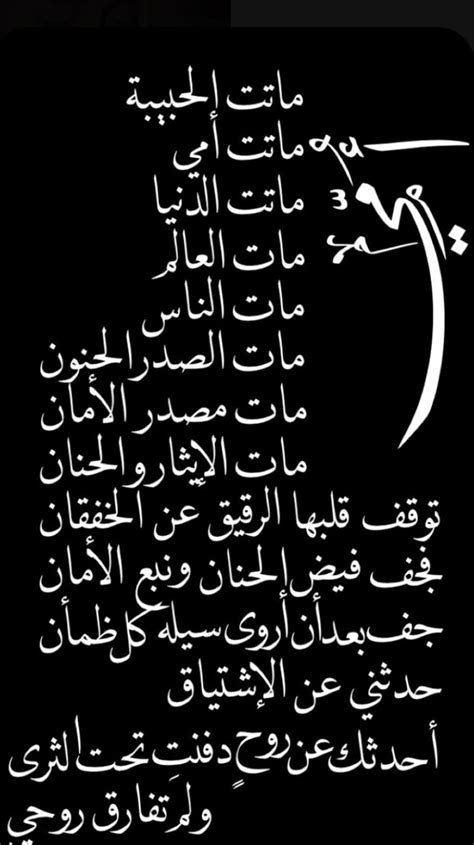 أمي
ماتت الحبيبة
ماتت أمي
ماتت الدنيا
مات العالم
مات الناس
مات الصدر الحنون
مات مصدر الأمان
مات الإيثار والحنان
توقف قلبها الرقيق عن الخفقان
فجف فيض الحنان ونبع الأمان
جف بعد أن أروى سيله كل ظمأن
حدثني عن الإشتياق
أحدثك عن روحٍ دفنت تحت الثرى
ولم تفارق روحي